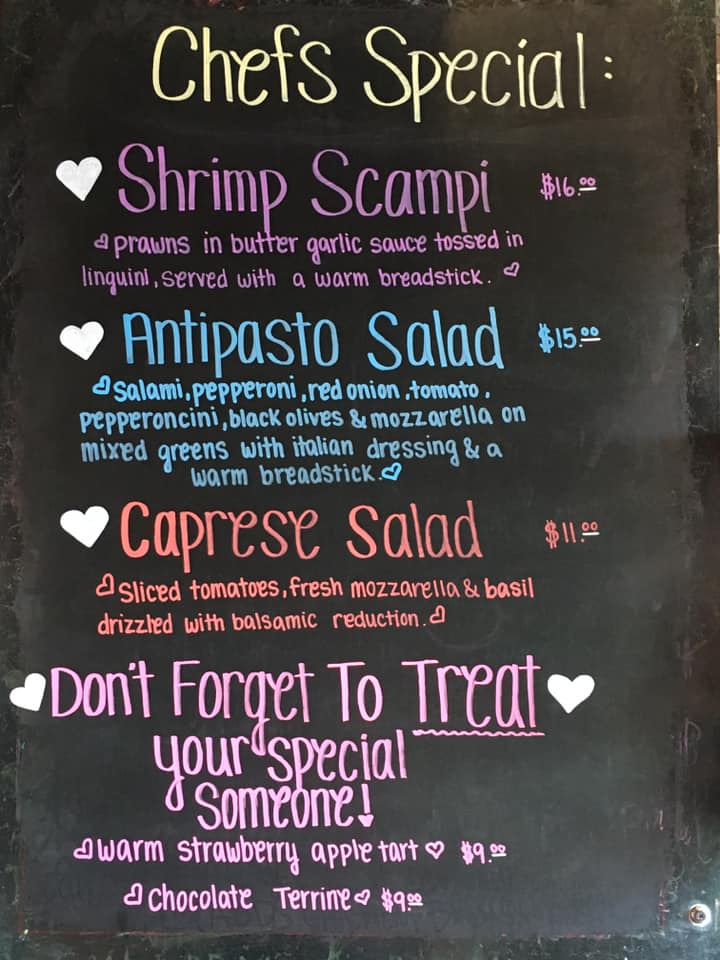 Chefs Special:
Shrimp Scampi $16.00
prawns in butter garlic sauce tossed in
linguini, served with a warm breadstick.
Antipasto Salad $15.00
Salami, pepperoni, red onion, tomato,
pepperoncini, black olives & mozzarella on
mixed greens with italian dressing & a
warm breadstick.
Caprese Salad $11.00
Sliced tomatoes, fresh mozzarella & basil
drizzled with balsamic reduction.
Don't Forget To Treat
your special
someone!
warm strawberry apple tart $9.00
Chocolate Terrine $9.00